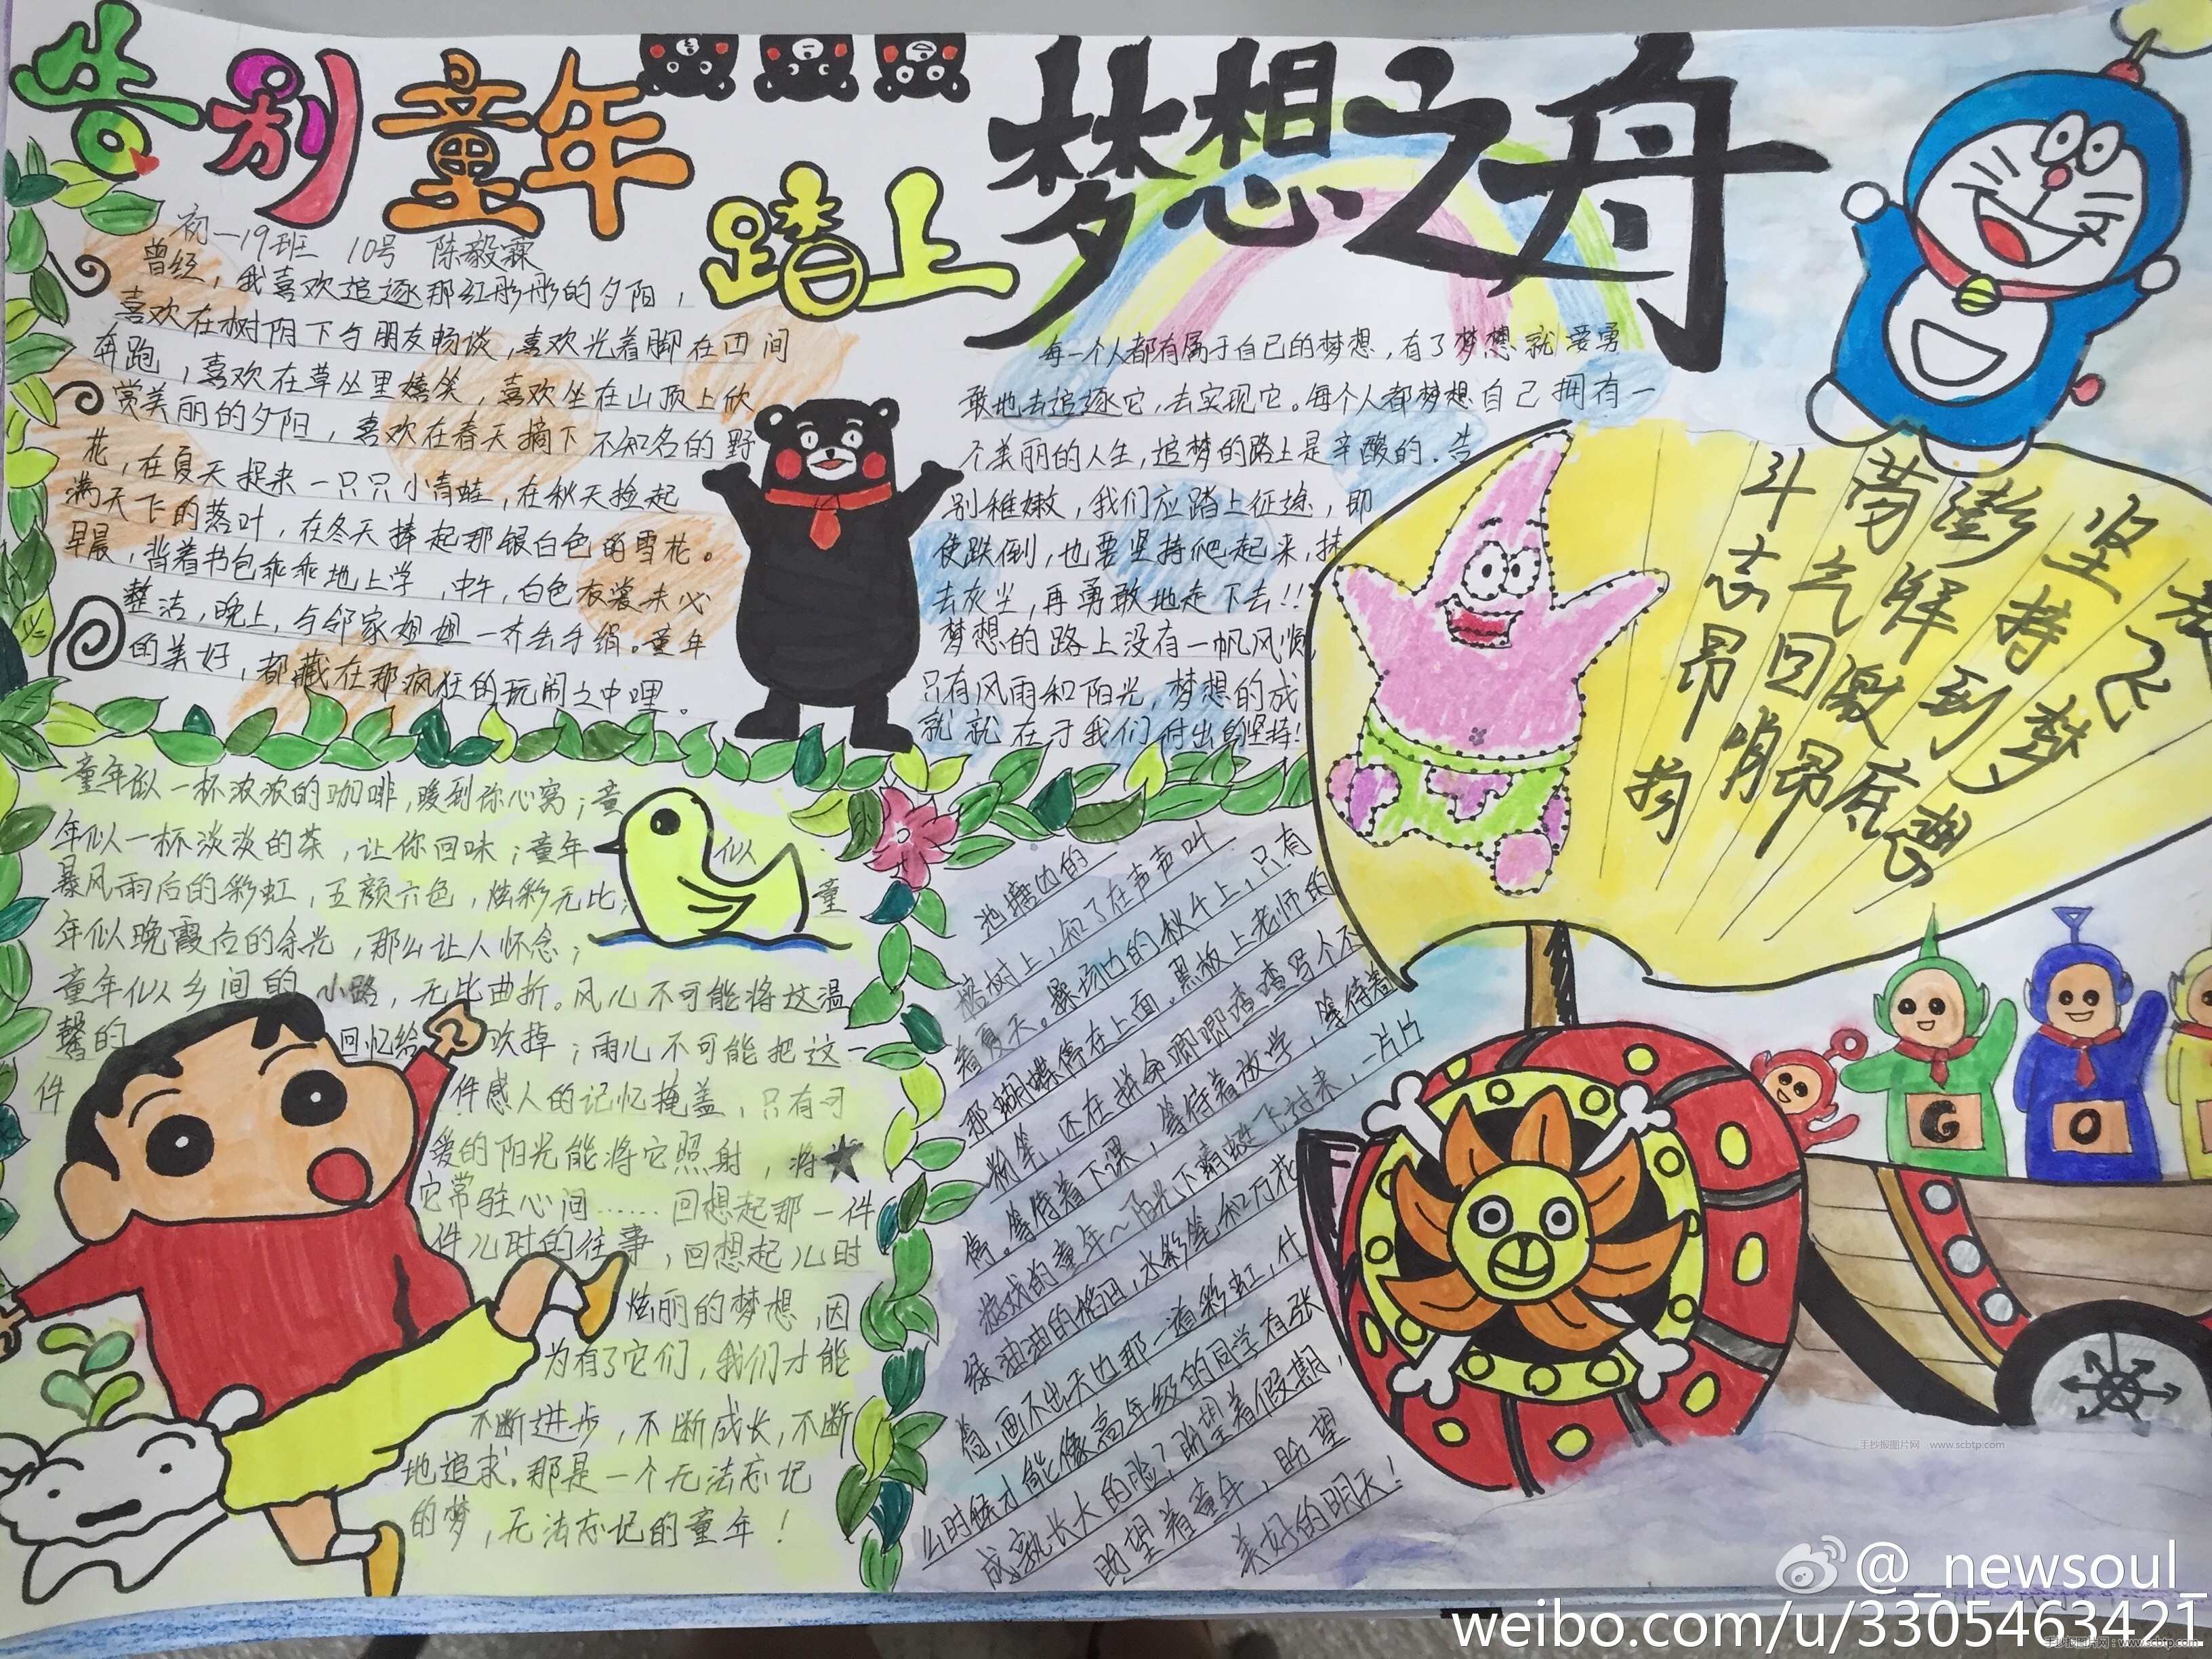 告别童年
踏上
梦想之舟
初一19班 10号 陈毅霖
曾经，我喜欢追逐那红彤彤的夕阳，
喜欢在树阴下与朋友畅谈，喜欢光着脚在田间
奔跑，喜欢在草丛里嬉笑，喜欢坐在山顶上欣
赏美丽的夕阳，喜欢在春天摘下不知名的野
花，在夏天捉来一只只小青蛙，在秋天捡起
满天飞的落叶，在冬天捧起那银白色的雪花。
早晨，背着书包乖乖地上学，中午，白色衣裳未必
整洁，晚上，与邻家姐姐一齐丢手绢。童年
的美好，都藏在那疯狂的玩闹之中哩。
每一个人都有属于自己的梦想，有了梦想就要勇
敢地去追逐它，去实现它。每个人都梦想自己拥有一
个美丽的人生，追梦的路上是辛酸的．告
别稚嫩，我们应踏上征途，即
使跌倒，也要坚持爬起来，抹
去灰尘，再勇敢地走下去!!
梦想的路上没有一帆风顺，
只有风雨和阳光，梦想的成
就就在于我们付出的坚持！
童年似一杯浓浓的咖啡，暖到你心窝；童
年似一杯淡淡的茶，让你回味；童年似
暴风雨后的彩虹，五颜六色，炫彩无比；童
年似晚霞后的余光，那么让人怀念；
童年似乡间的小路，无比曲折。风儿不可能将这温
馨的回忆给吹掉；雨儿不可能把这一
件件感人的记忆掩盖，只有可
爱的阳光能将它照射，将
它常驻心间……回想起那一件
件儿时的往事，回想起儿时
炫丽的梦想，因
为有了它们，我们才能
不断进步，不断成长，不断
地追求．那是一个无法忘记
的梦，无法忘记的童年！
池塘边的
榕树上，知了在声声叫
着夏天。操场边的秋千上，只有
那蝴蝶停在上面。黑板上老师的
粉笔，还在拼命唧唧喳喳写个不
停。等待着下课，等待着放学，等待着
游戏的童年～阳光下蜻蜓飞过来，一片片
绿油油的稻田，水彩笔和万花
筒，画不出天边那一道彩虹，什
么时候才能像高年级的同学有张
成熟长大的脸？盼望着假期，
盼望着童年，盼望
美好的明天！
坚持到梦想
澎湃激昂
荡气回
斗志昂扬
G
O
手抄报图片网：www.scbtp.com
@_newsoul_
weibo.com/u/3305463421
手抄报图片网：www.scbtp.com